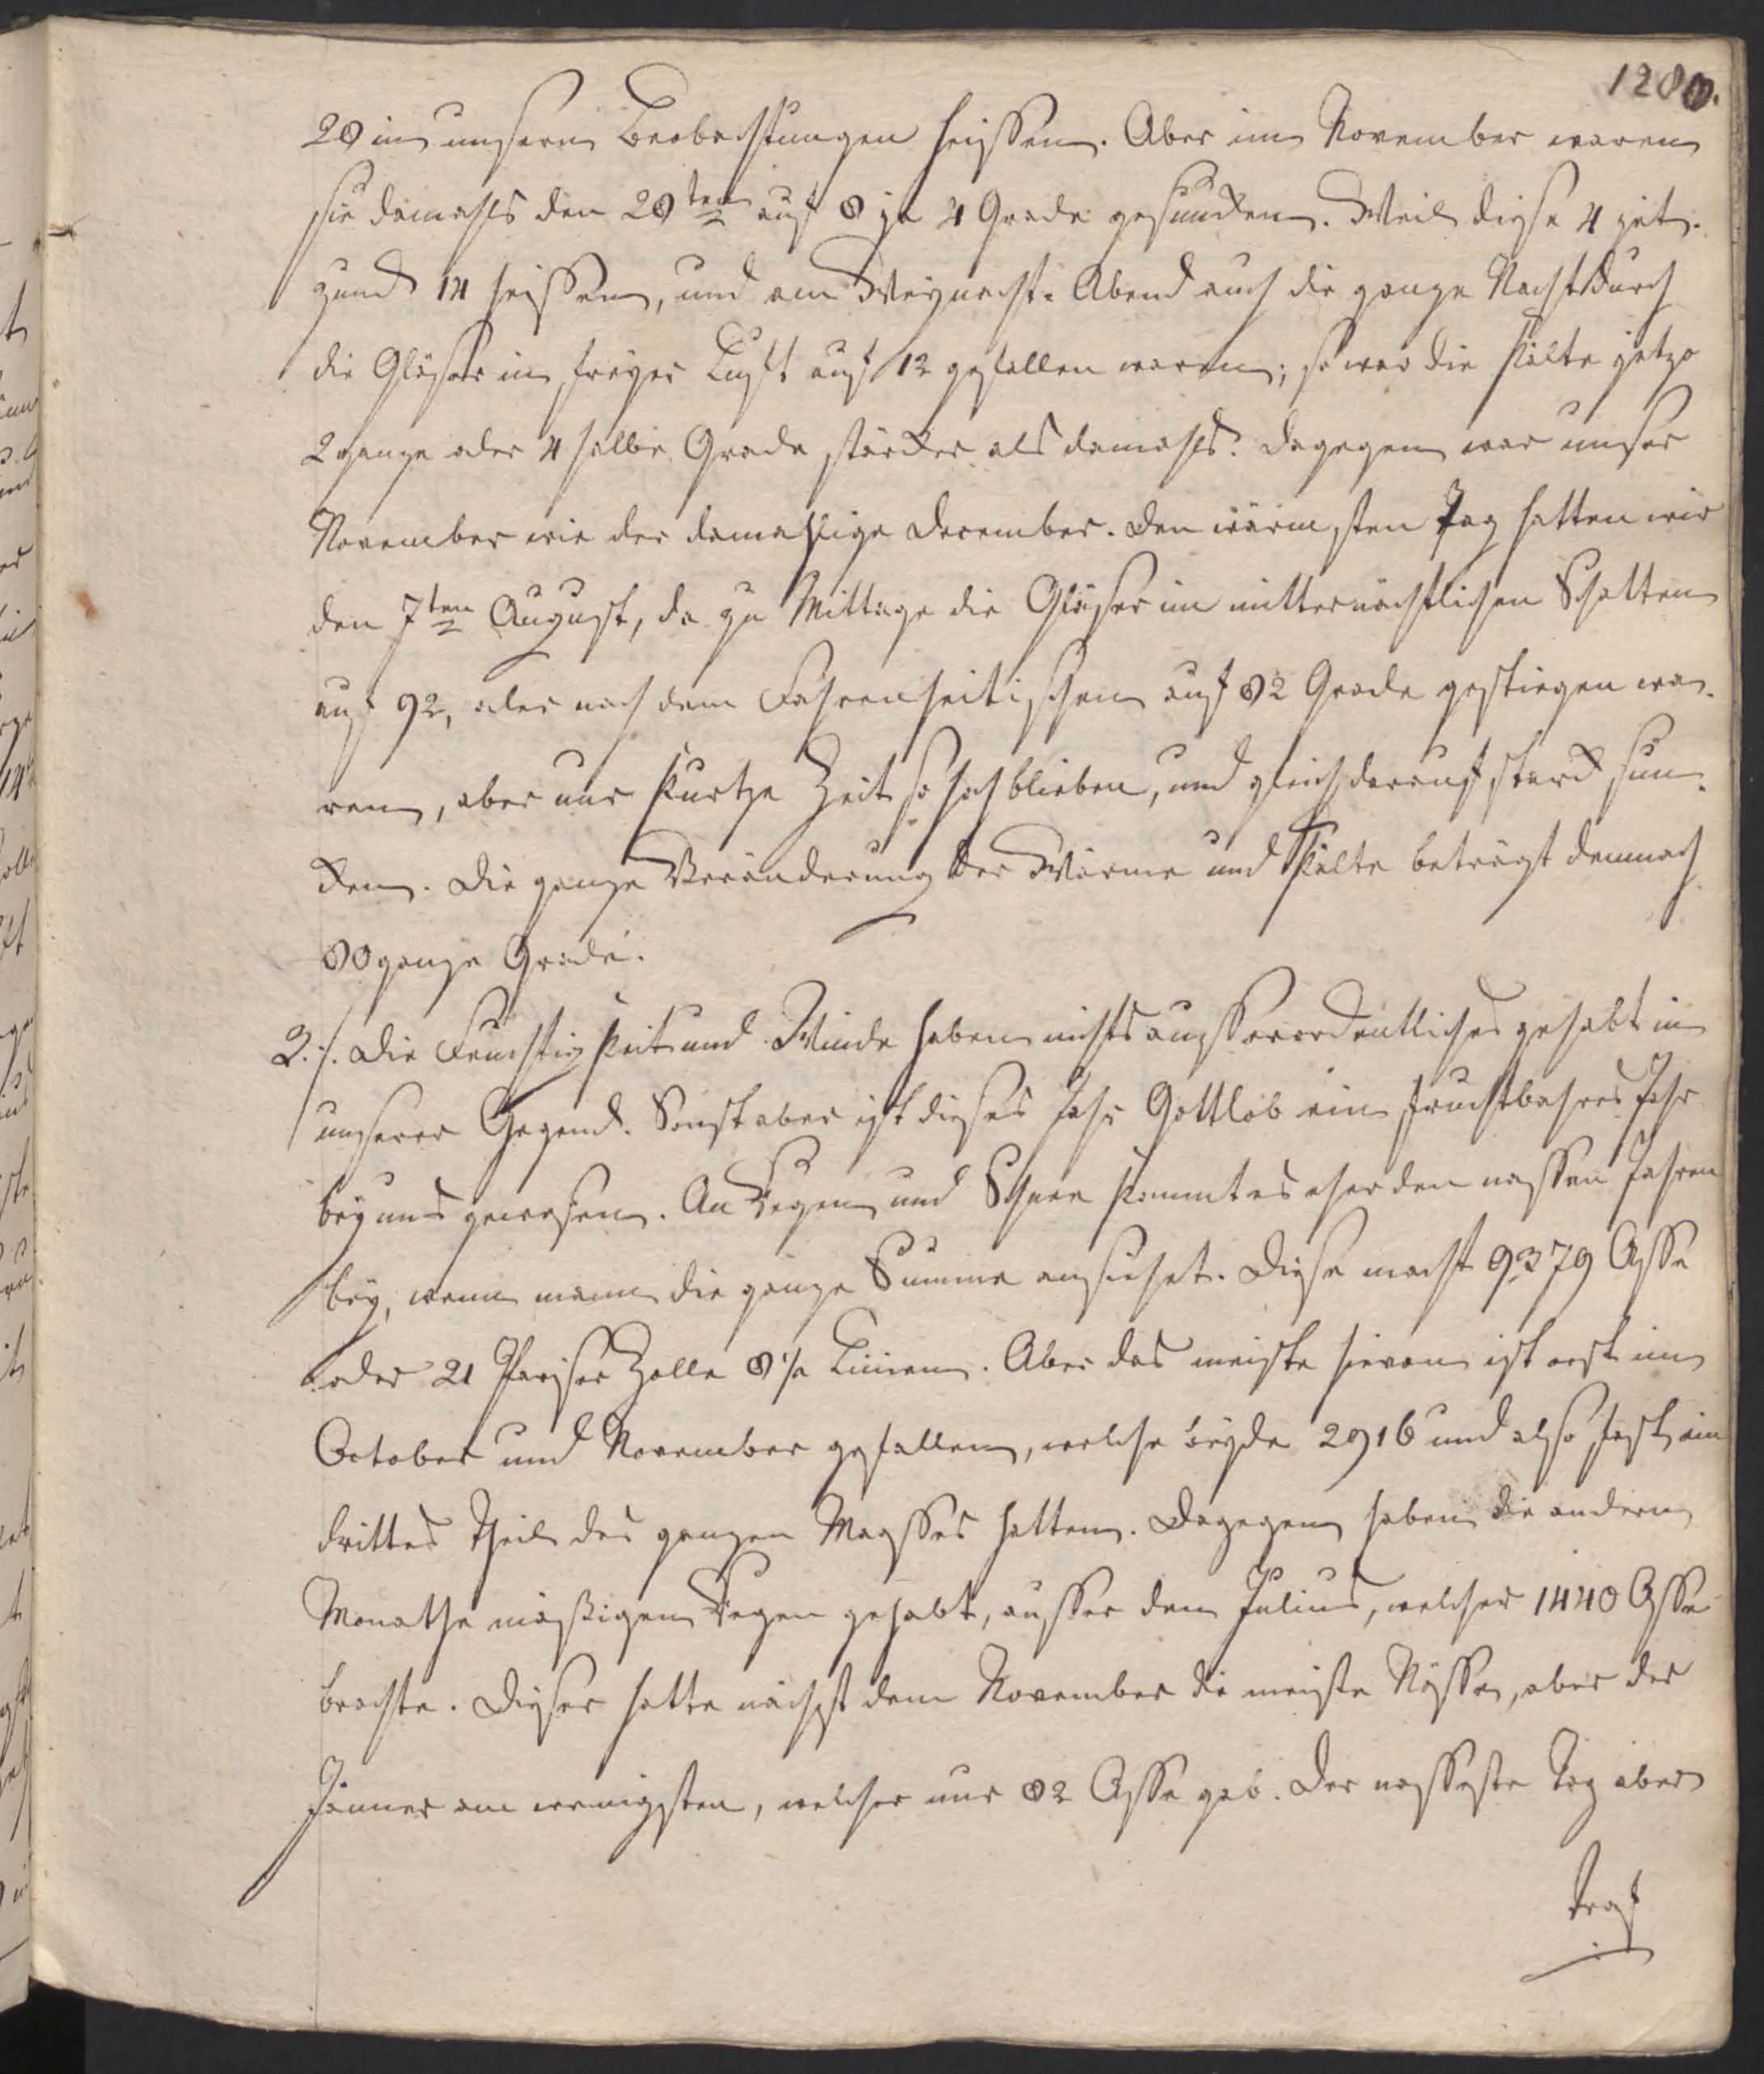 1280.
28 in unsern Beobachtungen heissen. Aber im November waren
sie damahls den 28ten auf 8 ja 4 Grade gesuncken. Weil diese 4 jetz-
und 14 heissen, und am Weynacht-Abend auch die gantze Nacht durch
die Gläser in freyer Luft auf 12 gefallen waren; so war die Kälte jetzo
2 gantze oder 4 halbe Grade stärcker als damahls. Dagegen war unser
November wie der damahlige December. Den wärmsten Tag hatten wir
den 7ten August, da zu Mittage die Gläser im mitternächtlichen Schatten
auf 92, oder nach dem Fahrenheitischen auf 82 Grade gestiegen wa-
ren, aber nur kurtze Zeit so hoch blieben, und gleich darauf starck sun-
cken. Die gantze Veränderung der Wärme und Kälte beträgt demnach
80 gantze Grade.
2./. Die Feuchtigkeit und Winde haben nichts ausserordentliches gehabt in
unserer Gegend. Sonst aber ist dieses Jahr Gottlob ein fruchtbahres Jahr
bey uns gewesen. An Regen und Schnee kommt es eher den nassen Jahren
bey, wenn mann die gantze Summe ansiehet. Diese macht 9379 Asse
oder 21 Pariser Zolle 8 1/2 Linien. Aber das meiste hievon ist erst im
October und November gefallen, welche beyde 2916 und also fast ein
drittes Theil des gantzen Masses hatten. Dagegen haben die andern
Monathe mäßigen Regen gehabt, ausser dem Julius, welcher 1440 Asse
brachte. Dieser hatte nächst dem November die meiste Nässe, aber der
Jänner am wenigsten, welcher nur 82 Asse gab. Der nasseste Tag aber
traf